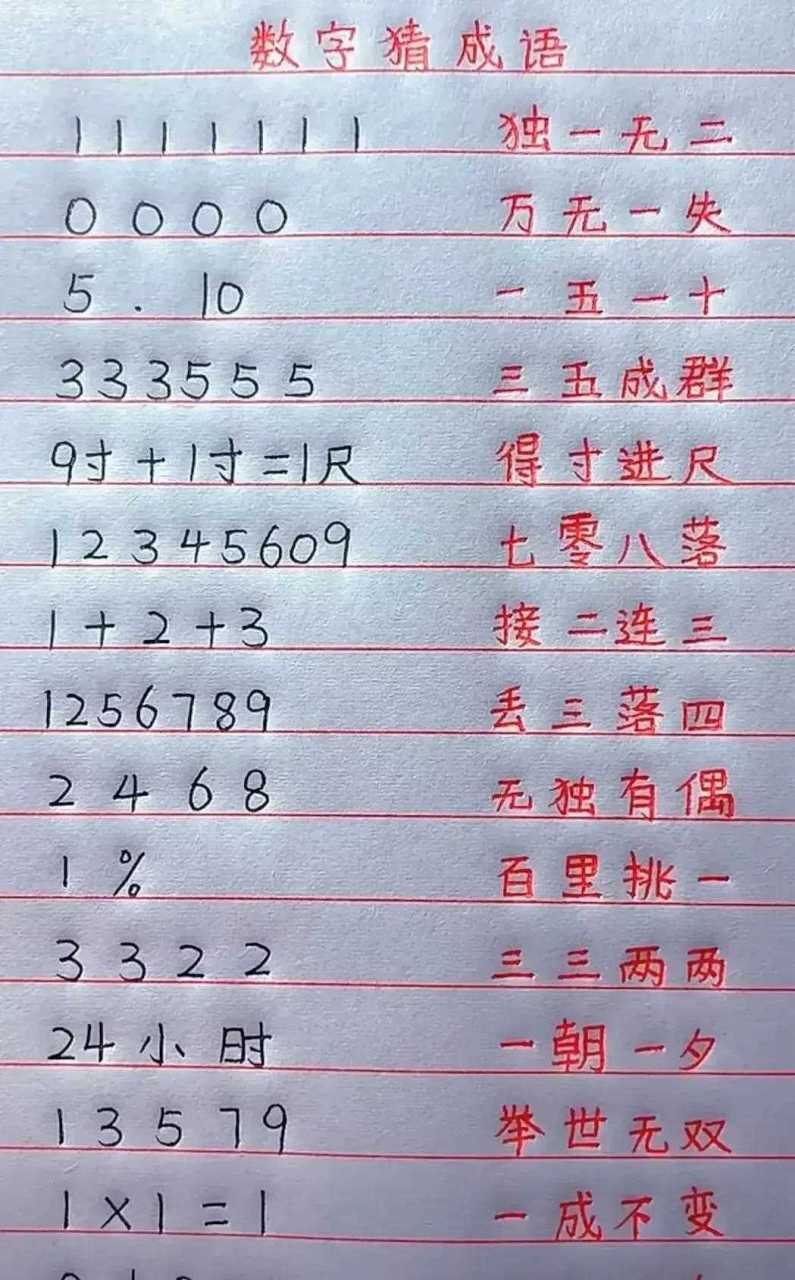 数字猜成语
1 1 1 1 1 1 1 独一无二
0 0 0 0 万无一失
5 . 10 一五一十
3 3 3 5 5 5 三五成群
9寸+1寸=1尺 得寸进尺
1 2 3 4 5 6 0 9 七零八落
1+2+3 接二连三
1256789 丢三落四
2 4 6 8 无独有偶
1 % 百里挑一
3 3 2 2 三三两两
24小时 一朝一夕
1 3 5 7 9 举世无双
1×1=1 一成不变